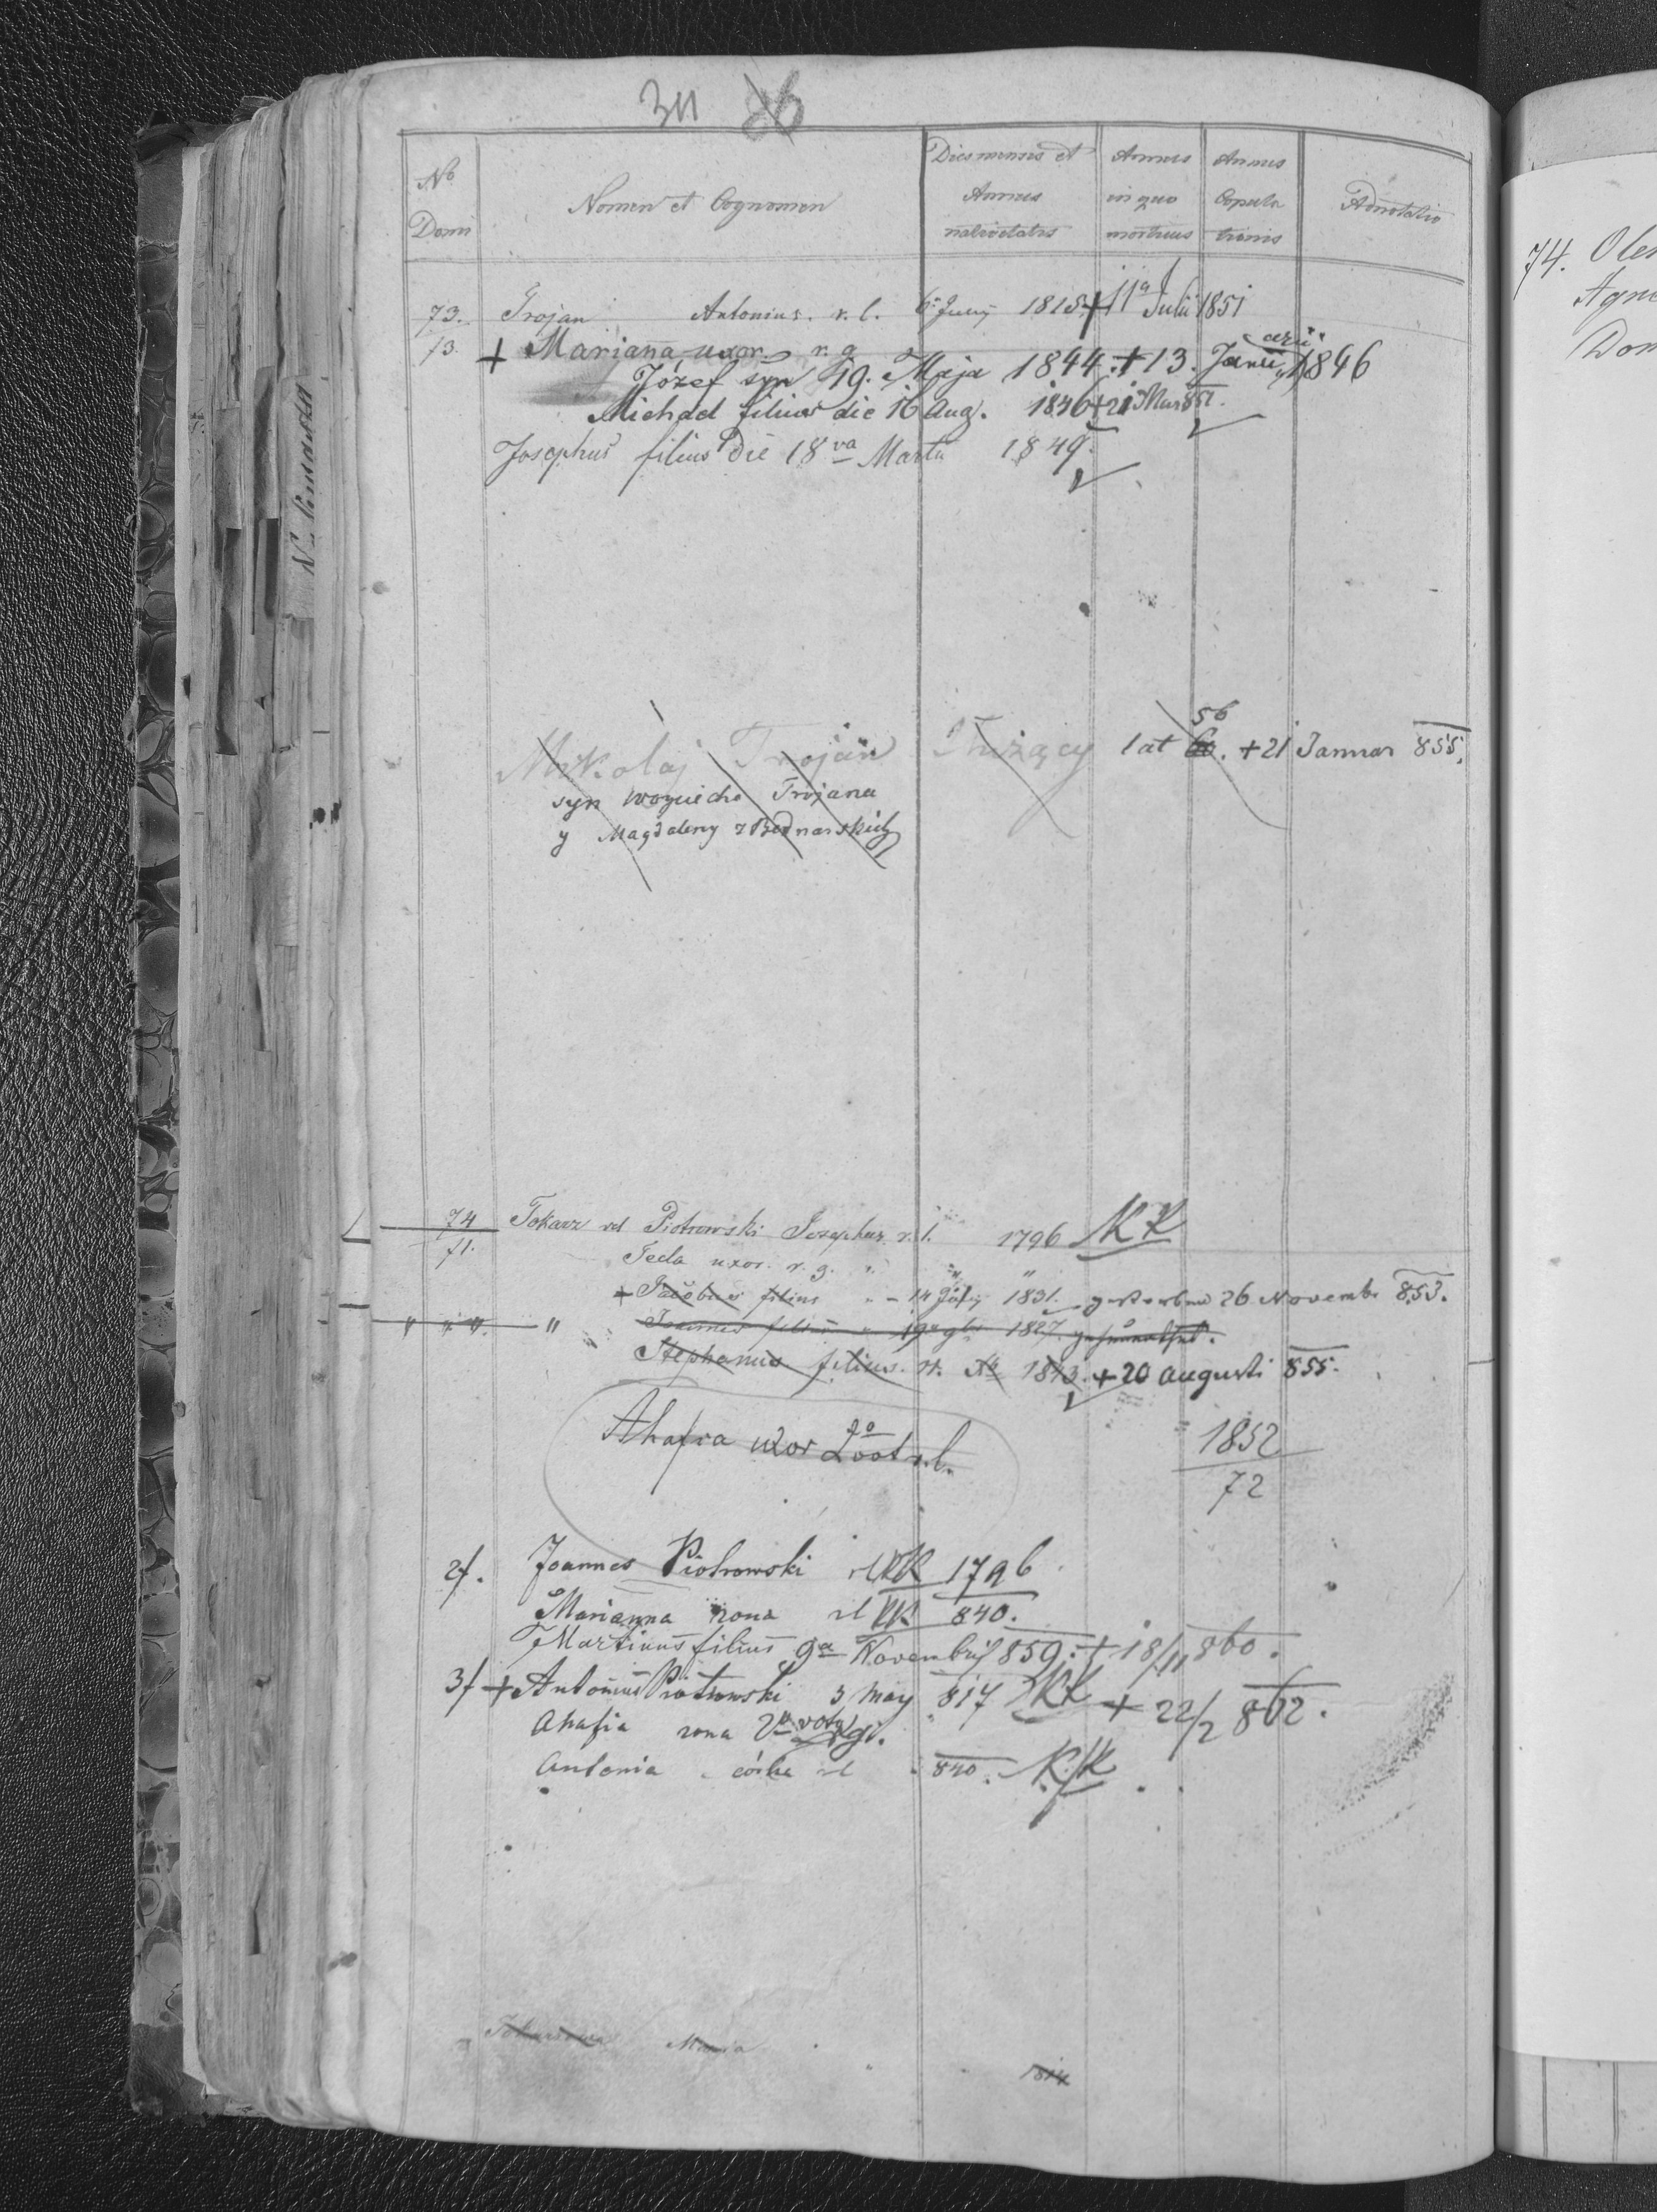 311 86
No Domi
Nomen et Cognomen
Dies mensis et Annus nativitatis
Annus in quo mortuus
Annus Copulationis
Adnotatio
73. Trojan Antonius. r. l. 6 Junij 1818 + 11a Julii 1851
73. + Mariana uxor r. g.
Józef syn 19. Maja 1844. + 13. Januarii 1846
Michael filius die 16 Aug. 1846 + 21 Mar 851.
Josephus filius die 18va Martii 1849.
Mikolaj Trojan Służący lat 60. 56 + 21 Januar 855.
syn Woyciecha Trojana
y Magdaleny z Bednarskich
74 Tokarz vel Piotrowski Josephus r. l. 1796 KK
f1. Teda uxor. r. g. " " "
+ Jacobus filius " - 14 1831. gestorben 26 Novembr 853.
" " " " Joannes filius " 19 1827.
Stephanus filius. r. 1843. + 20 Augusti 855.
Ahafia uxor 2do voto r.l. 1852
72
2f. Joannes Piotrowski rl KK 1796
Marianna żona rl KK 840.
Martinus filius 9a Novembris 859. + 18/11 860.
3f + Antonius Piotrowski 3 May 817 KK + 22/2 862.
Ahafia żona voto rgr.
Antonia córka rl 840. KK
Maria
1814
74.
Agn
Dom